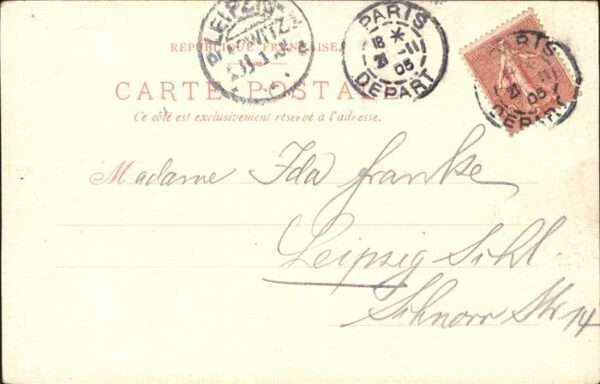 LEIPZIG
PARIS
18 * 11
21 05
DEPART
PARIS
05
DEPART
RÉPUBLIQUE FRANÇAISE
CARTE POSTALE
Ce côté est exclusivement réservé à l'adresse.
Madame Ida Franke
Leipzig Schl.
Schnorr Str 14